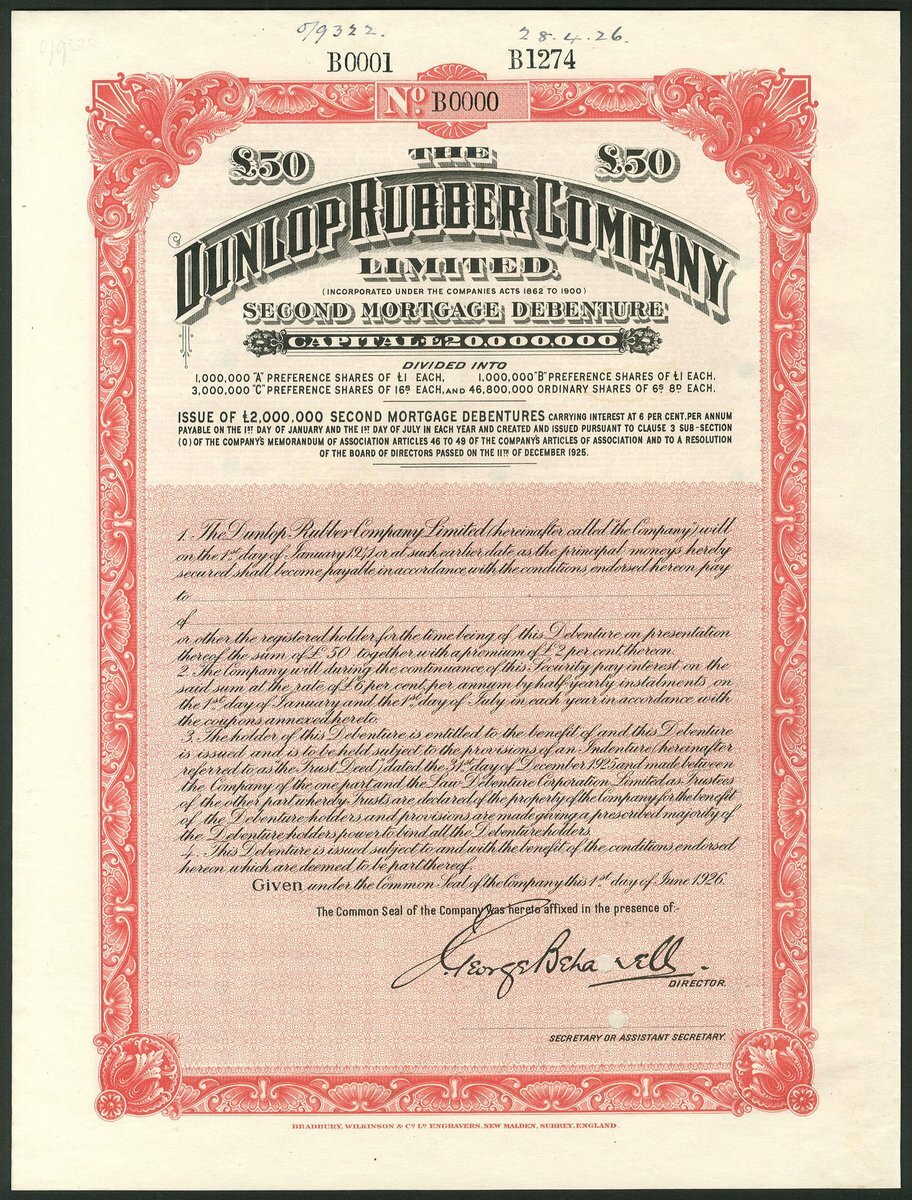 o/9322. 28.4.26.
B0001 B1274
No. B0000
£50 THE £50
DUNLOP RUBBER COMPANY
LIMITED.
(INCORPORATED UNDER THE COMPANIES ACTS 1862 TO 1900)
SECOND MORTGAGE DEBENTURE
CAPITAL £20,000,000
DIVIDED INTO
1,000,000 "A" PREFERENCE SHARES OF £1 EACH, 1,000,000 "B" PREFERENCE SHARES OF £1 EACH.
3,000,000 "C" PREFERENCE SHARES OF 16S EACH, AND 46,800,000 ORDINARY SHARES OF 6S 8D EACH.
ISSUE OF £2,000,000 SECOND MORTGAGE DEBENTURES CARRYING INTEREST AT 6 PER CENT. PER ANNUM
PAYABLE ON THE 1ST DAY OF JANUARY AND THE 1ST DAY OF JULY IN EACH YEAR AND CREATED AND ISSUED PURSUANT TO CLAUSE 3 SUB-SECTION
(O) OF THE COMPANY'S MEMORANDUM OF ASSOCIATION ARTICLES 46 TO 49 OF THE COMPANY'S ARTICLES OF ASSOCIATION AND TO A RESOLUTION
OF THE BOARD OF DIRECTORS PASSED ON THE 11TH OF DECEMBER 1925.
1. The Dunlop Rubber Company Limited (hereinafter called "the Company") will
on the 1st day of January or at such earlier date as the principal moneys hereby
secured shall become payable in accordance with the conditions endorsed hereon pay
to
of
or other the registered holder for the time being of this Debenture on presentation
thereof the sum of £50 together with a premium of £2 per cent. thereon.
2. The Company will during the continuance of this Security pay interest on the
said sum at the rate of £6 per cent. per annum by half yearly instalments on
the 1st day of January and the 1st day of July in each year in accordance with
the coupons annexed hereto.
3. The holder of this Debenture is entitled to the benefit of and this Debenture
is issued and is to be held subject to the provisions of an Indenture (hereinafter
referred to as "the Trust Deed") dated the 31st day of December 1925 and made between
the Company of the one part and the Law Debenture Corporation Limited as Trustees
of the other part whereby Trusts are declared of the property of the Company for the benefit
of the Debenture holders and provisions are made giving a prescribed majority of
the Debenture holders power to bind all the Debenture holders.
4. This Debenture is issued subject to and with the benefit of the conditions endorsed
hereon which are deemed to be part thereof.
Given under the Common Seal of the Company this 1st day of June 1926.
The Common Seal of the Company was hereto affixed in the presence of:-
George Beharrell.
DIRECTOR.
SECRETARY OR ASSISTANT SECRETARY.
BRADBURY, WILKINSON & Co Ld ENGRAVERS, NEW MALDEN, SURREY, ENGLAND.